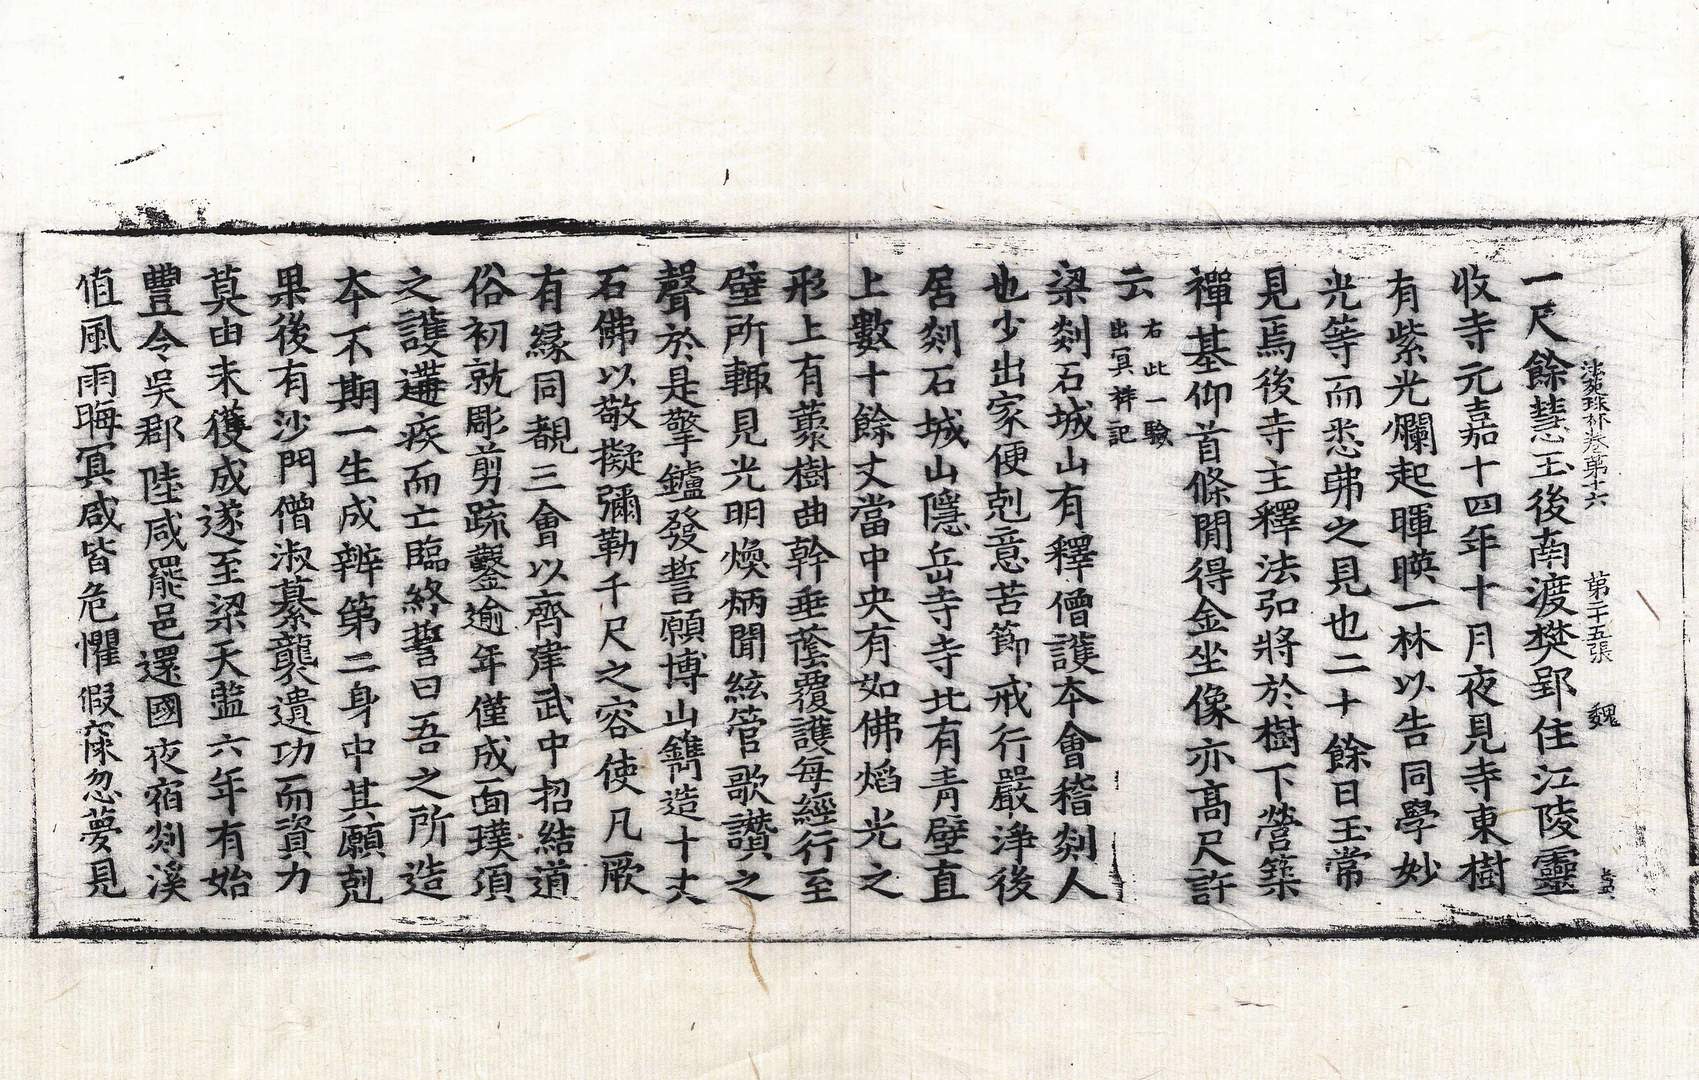 一尺餘慧玉後南渡樊郢住江陵靈
法苑珠林卷第十六 第二十五張 魏
收寺元嘉十四年十月夜見寺東樹
有紫光爛起暉暎一林以告同學妙
光等而悉弗之見也二十餘日玉常
見焉後寺主釋法弘將於樹下營築
禪基仰首條間得金坐像亦高尺許
云 右此一驗出冥祥記
梁剡石城山有釋僧護本會稽剡人
也少出家便剋意苦節戒行嚴淨後
居剡石城山隱岳寺寺北有青壁直
上數十餘丈當中央有如佛焰光之
形上有叢樹曲幹垂蔭覆護每經行至
壁所輒見光明煥炳聞絃管歌讚之
聲於是擎鑪發誓願博山鐫造十丈
石佛以敬擬彌勒千尺之容使凡厥
有緣同覩三會以齊建武中招結道
俗初就彫剪疏鑿逾年僅成面璞須
之護遘疾而亡臨終誓曰吾之所造
本不期一生成辦第二身中其願剋
果後有沙門僧淑纂襲遺功而資力
莫由未獲成遂至梁天監六年有始
豐令吳郡陸咸罷邑還國夜宿剡溪
值風雨晦冥咸皆危懼假寐忽夢見